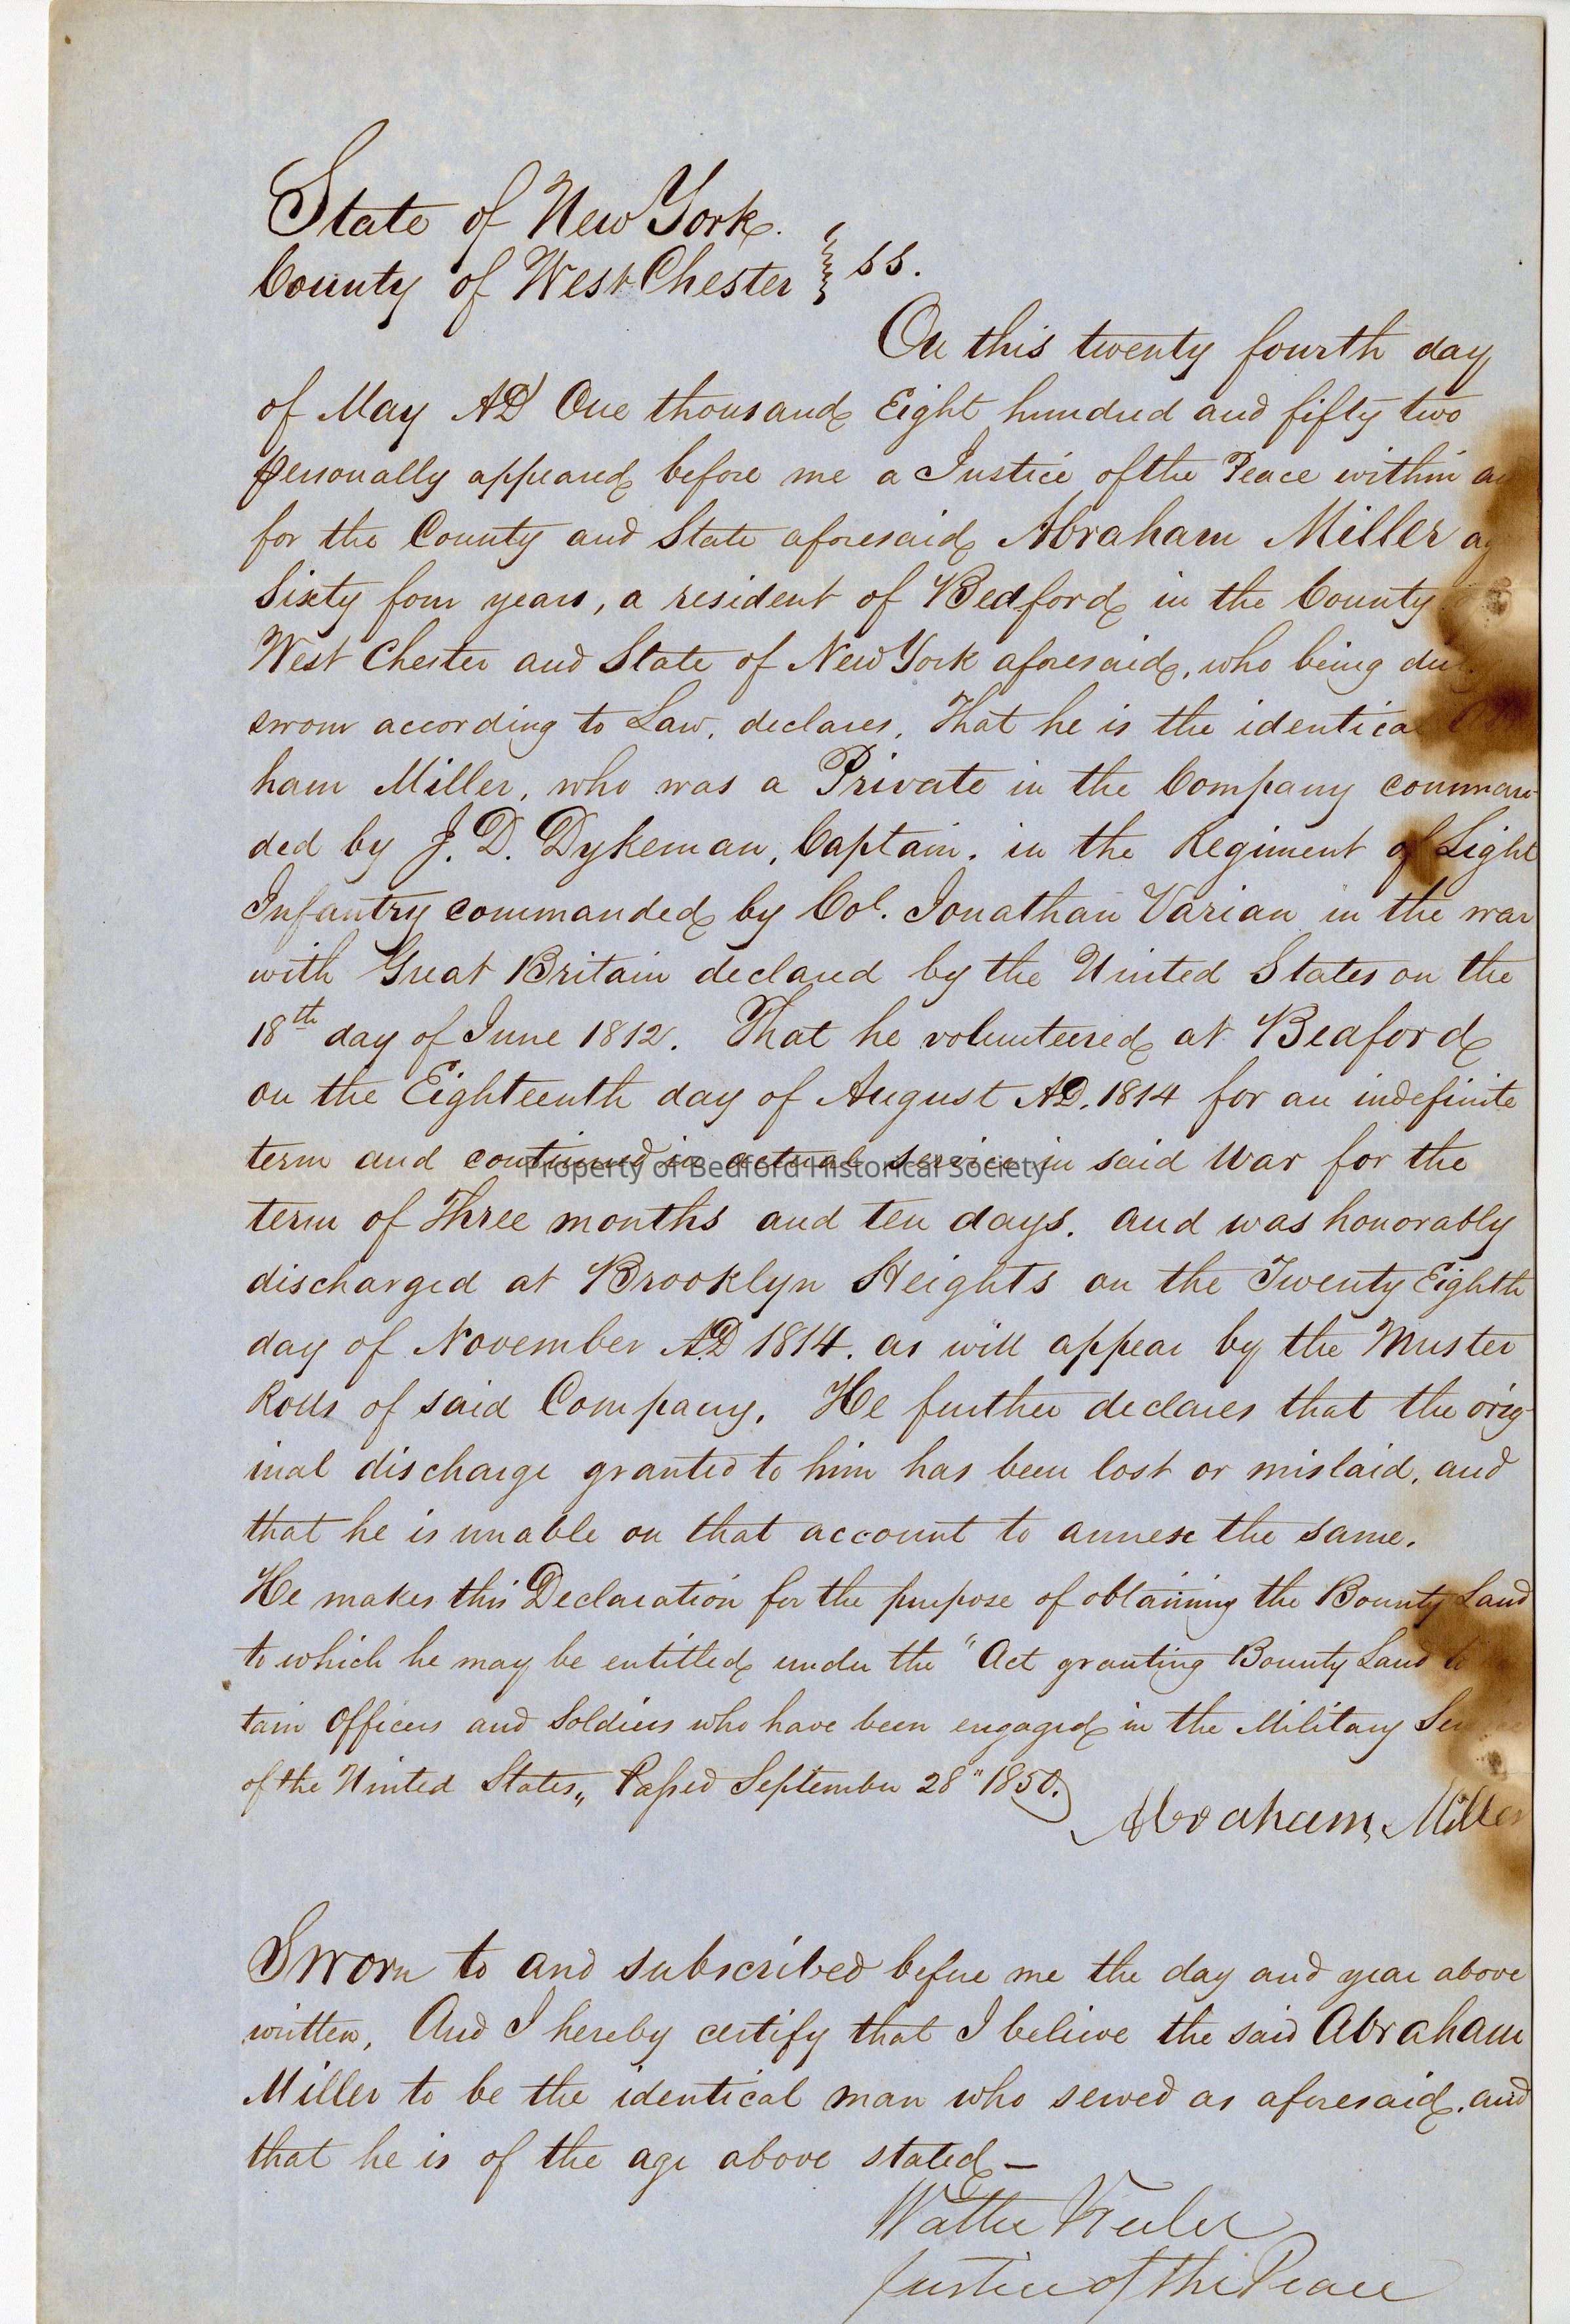 State of New York.
County of West Chester } ss.
On this twenty fourth day
of May AD One thousand Eight hundred and fifty two
personally appeared before me a Justice of the Peace within
for the County and State aforesaid Abraham Miller
Sixty four years, a resident of Bedford in the County
West Chester and State of New York aforesaid, who being duly
sworn according to Law, declares, That he is the identical
ham Miller, who was a Private in the Company comman-
ded by J. D. Dykeman, Captain, in the Regiment of Light
Infantry commanded by Col. Jonathan Varian in the war
with Great Britain declared by the United States on the
18th day of June 1812. That he volunteered at Bedford
on the Eighteenth day of August AD. 1814 for an indefinite
term and continued in actual service in said War for the
Property of Bedford Historical Society
term of Three months and ten days. and was honorably
discharged at Brooklyn Heights on the Twenty Eighth
day of November A.D 1814. as will appear by the Muster
Rolls of said Company. He further declares that the orig-
inal discharge granted to him has been lost or mislaid, and
that he is unable on that account to annex the same.
He makes this Declaration for the purpose of obtaining the Bounty Land
to which he may be entitled under the "Act granting Bounty Land to
tain Officers and Soldiers who have been engaged in the Military
of the United States„ Passed September 28" 1850.
Abraham Miller
Sworn to and subscribed before me the day and year above
written, And I hereby certify that I believe the said Abraham
Miller to be the identical man who served as aforesaid, and
that he is of the age above stated —
Walter Keeler
Justice of the Peace